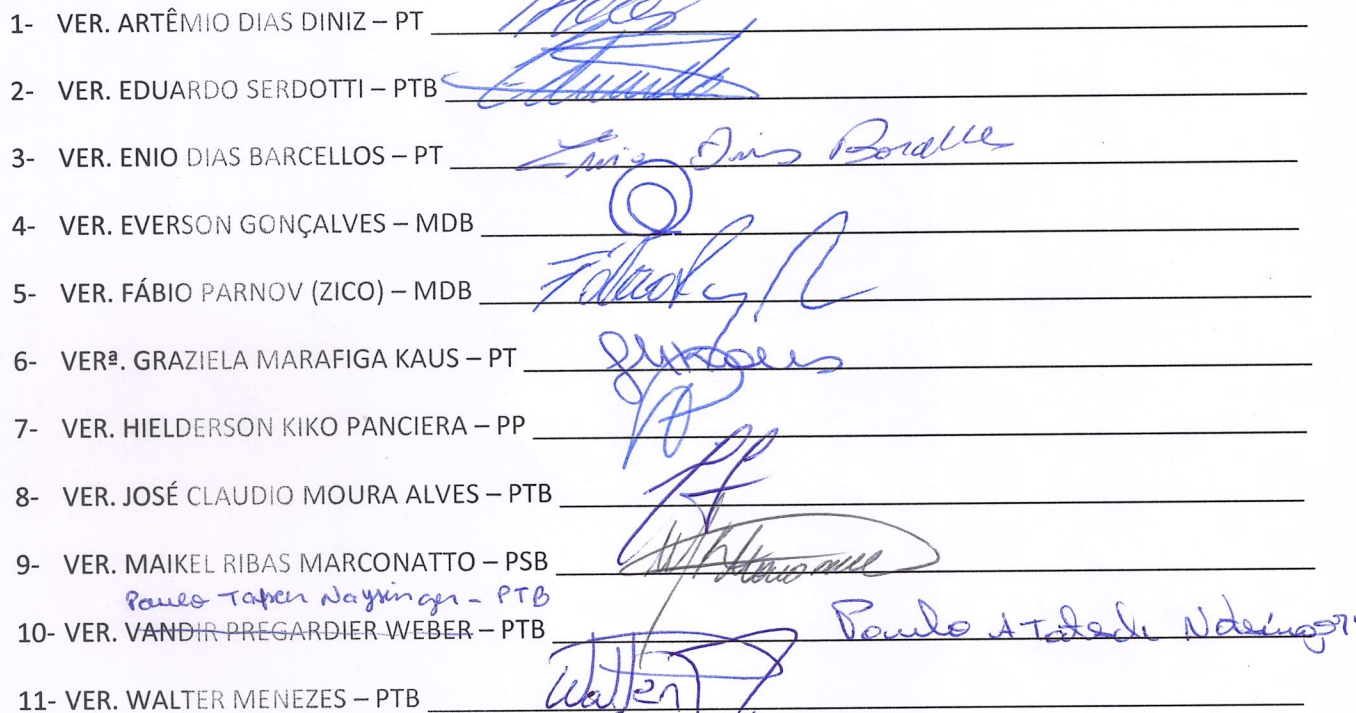 1- VER. ARTÊMIO DIAS DINIZ – PT
2- VER. EDUARDO SERDOTTI – PTB
3- VER. ENIO DIAS BARCELLOS – PT
4- VER. EVERSON GONÇALVES – MDB
5- VER. FÁBIO PARNOV (ZICO) – MDB
6- VERª. GRAZIELA MARAFIGA KAUS – PT
7- VER. HIELDERSON KIKO PANCIERA – PP
8- VER. JOSÉ CLAUDIO MOURA ALVES – PTB
9- VER. MAIKEL RIBAS MARCONATTO – PSB
Paulo - PTB
10- VER. VANDIR PREGARDIER WEBER – PTB Paulo A
11- VER. WALTER MENEZES – PTB Walter